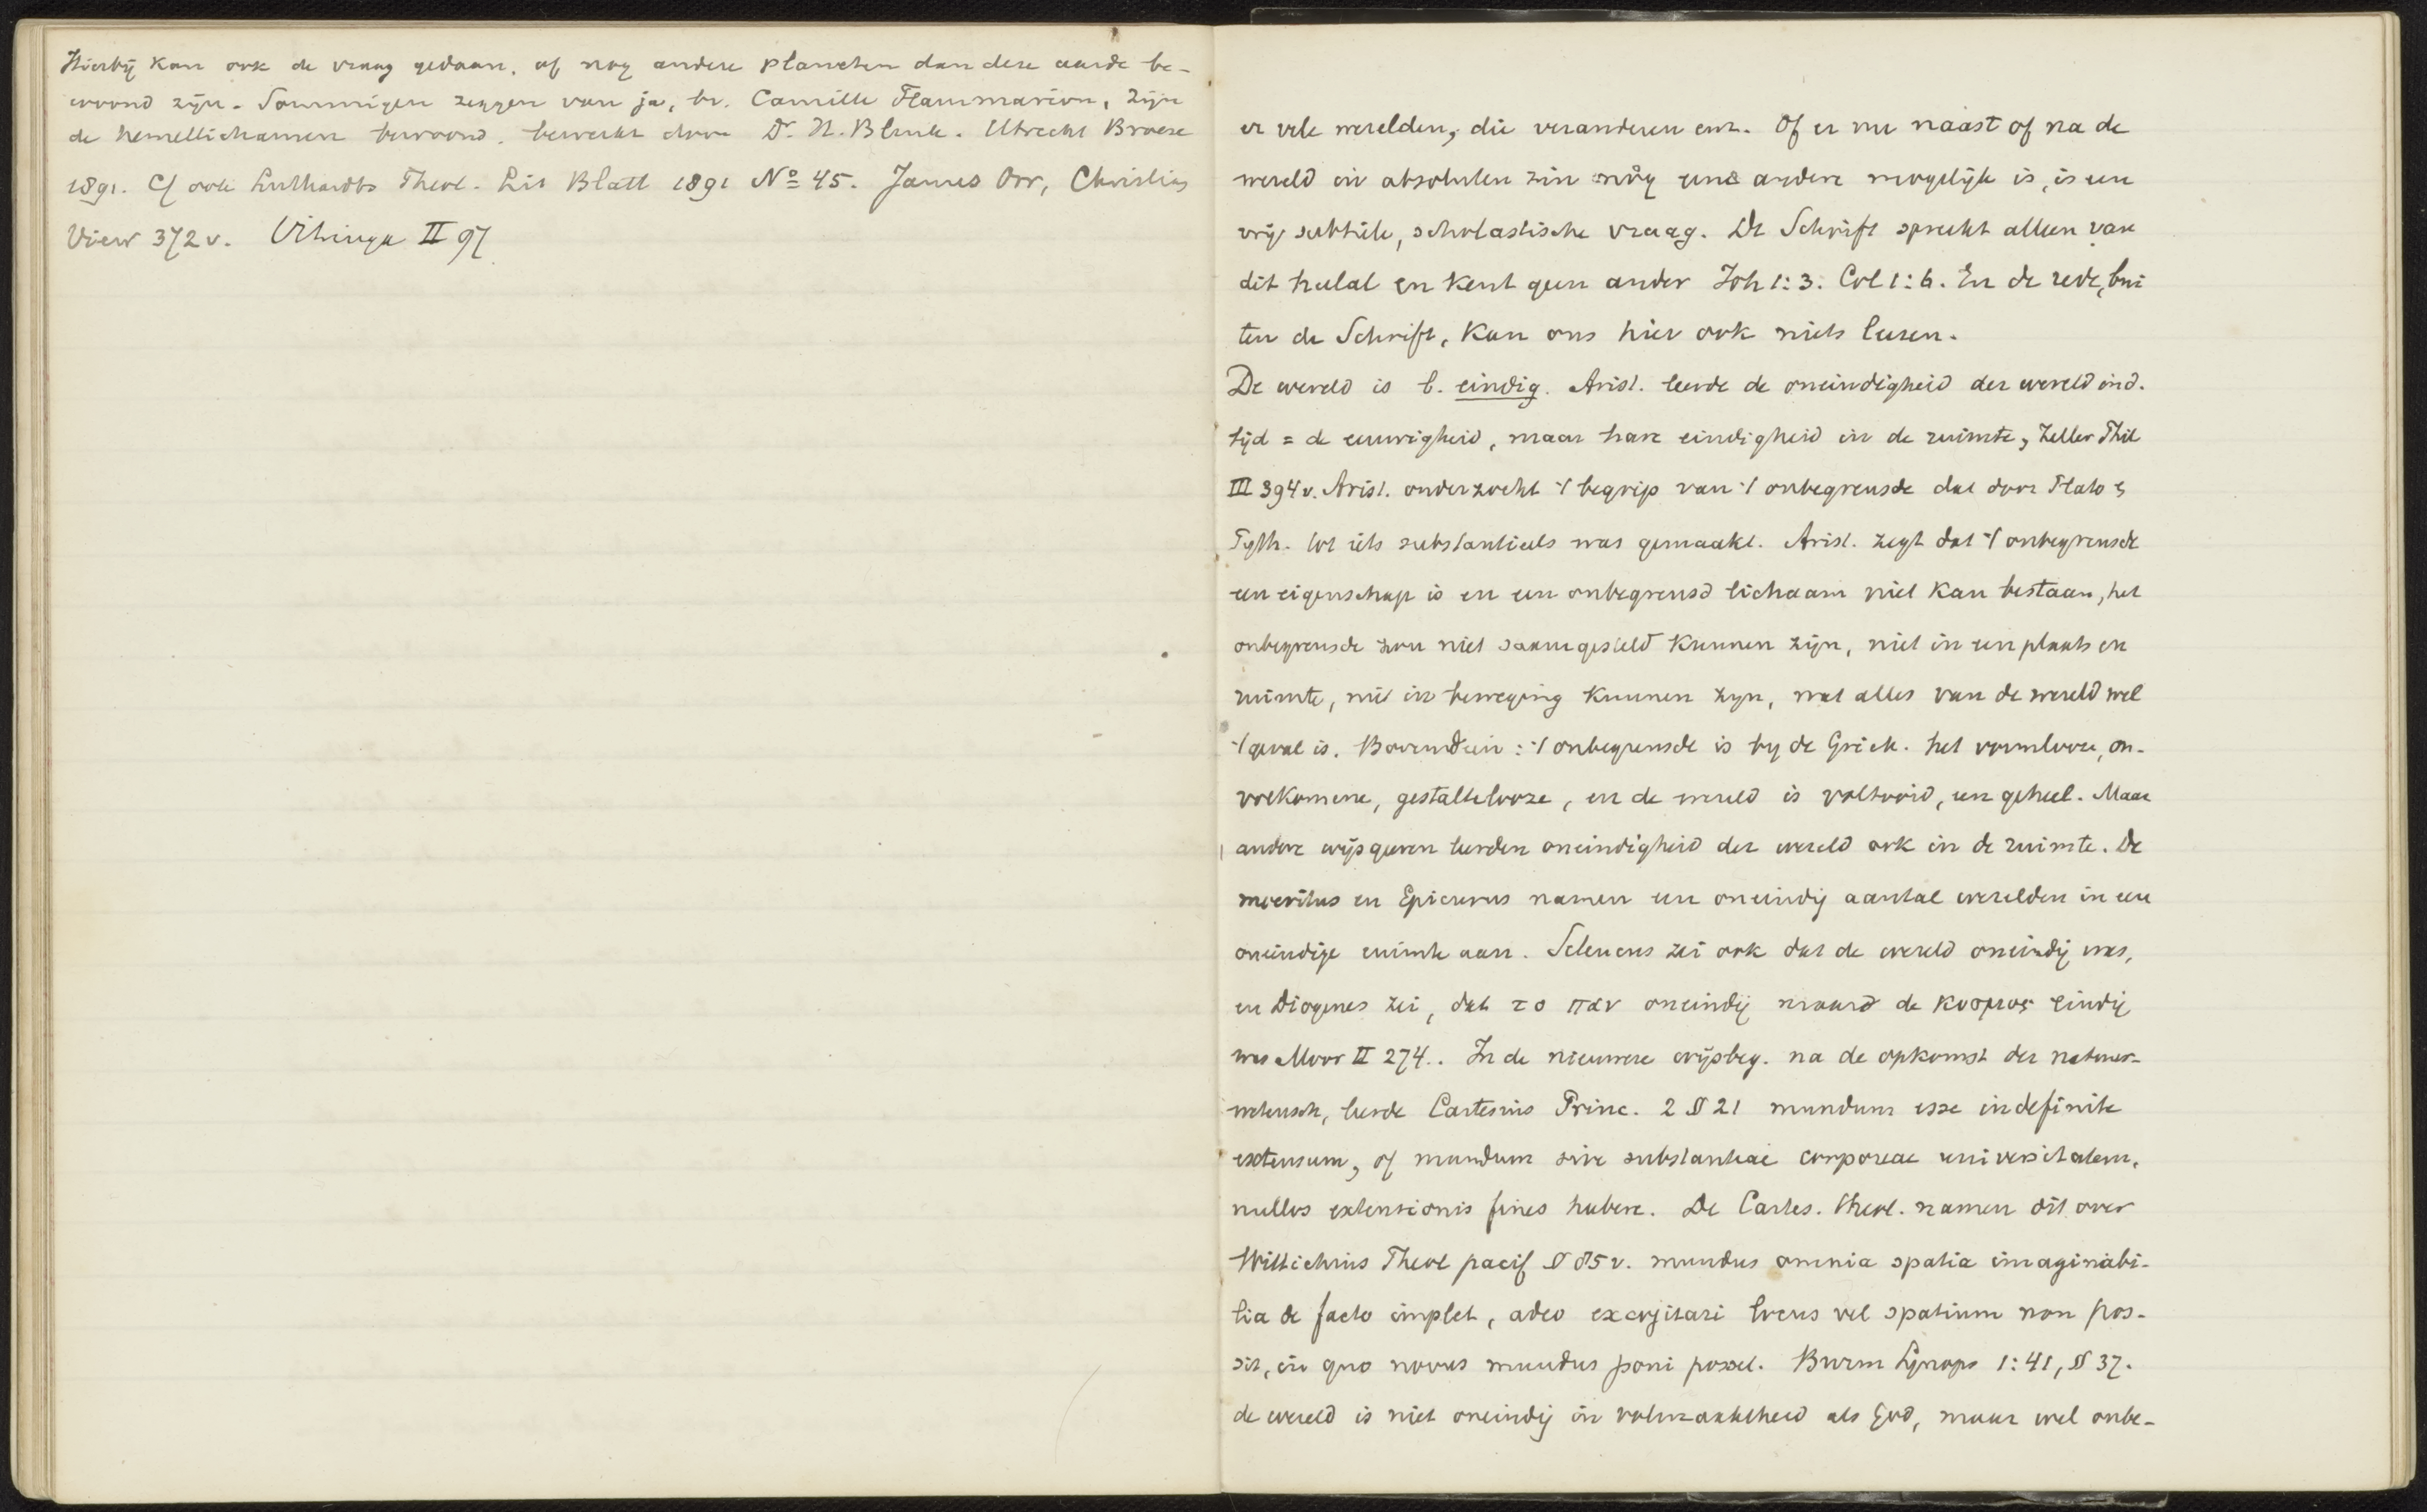 Hierbij kan ook de vraag gedaan, of nog andere planeten dan deze aarde be-
woond zijn. Sommigen zeggen van ja, bv. Camille Flammarion, Zijn
de hemellichamen bewoond. bewerkt door Dr. H. Blink. Utrecht Broese
1891. Cf ook Luthardts Theol. Lit Blatt 1891 No 45. James Orr, Christian
View 372 v. Vitringa II 97
er vele werelden, die veranderen enz. Of er nu naast of na de
wereld in absoluten zin nòg eene andere mogelijk is, is een
vrij subtiele, scholastische vraag. De Schrift spreekt alleen van
dit heelal en kent geen ander Joh 1:3. Col 1:6. En de rede, bui
ten de Schrift, kan ons hier ook niets leeren.
De wereld is b. eindig. Arist. leerde de oneindigheid der wereld in d.
tijd = de eeuwigheid, maar hare eindigheid in de ruimte, Zeller Phil
III 394 v. Arist. onderzocht 't begrip van 't onbegrensde dat door Plato &
Pyth. tot iets substantieels was gemaakt. Arist. zegt dat 't onbegrensde
een eigenschap is en een onbegrensd lichaam niet kan bestaan, het
onbegrensde zou niet saamgesteld kunnen zijn, niet in een plaats en
ruimte, niet in beweging kunnen zyn, wat alles van de wereld wel
't geval is. Bovendien: 't onbegrensde is by de Griek. het vormlooze, on-
volkomene, gestaltelooze, en de wereld is voltooid, een geheel. Maar
andere wijsgeeren leerden oneindigheid der wereld ook in de ruimte. De
mocritus en Epicurus namen een oneindig aantal werelden in een
oneindige ruimte aan. Seleucus zei ook dat de wereld oneindig was,
en Diogenes zei, dat το παν oneindig maard de κοσμος eindig
was Moor II 274.. In de nieuwere wijsbeg. na de opkomst der natuur-
wetensch, leerde Cartesius Princ. 2 § 21 mundum esse indefinite
extensum, of mundum sive substantiae corporeae universitatem,
nullos extensionis fines habere. De Cartes. theol. namen dit over
Wittichius Theol pacif § 85 v. mundus omnia spatia imaginabi-
lia de facto implet, adeo excogitari locus vel spatium non pos-
sit, in quo novus mundus poni posset. Burm Synops 1:41, § 37.
de wereld is niet oneindig in volmaaktheid als God, maar wel onbe-